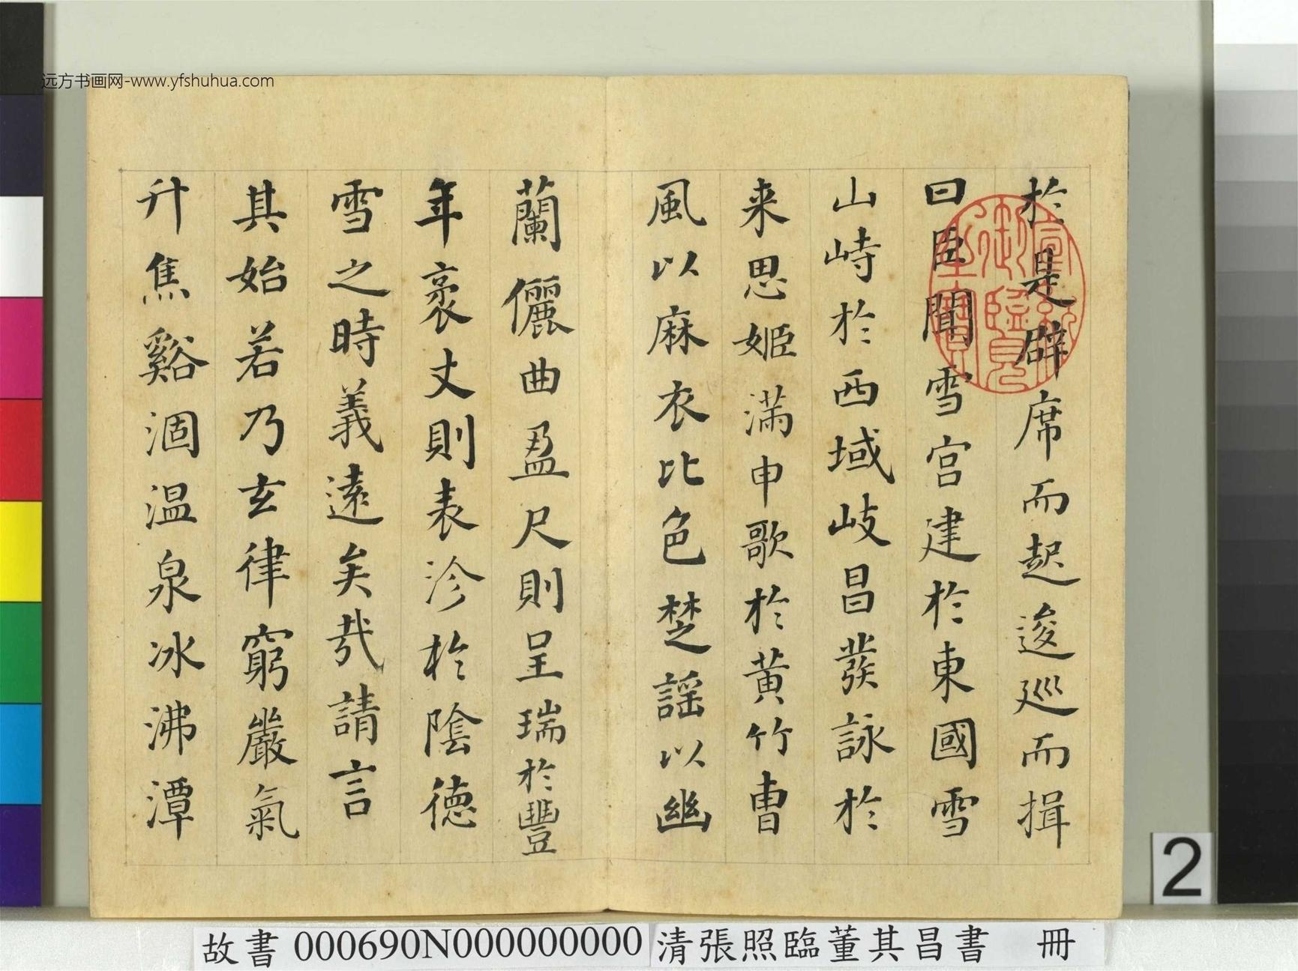 远方书画网-www.yfshuhua.com
扵是辟席而起逡巡而揖
曰臣聞雪宫建扵東國雪
山峙扵西域岐昌發詠扵
来思姬滿申歌扵黄竹曹
風以麻衣比色楚謡以幽
蘭儷曲盈尺則呈瑞扵豐
年袤丈則表沴扵陰德
雪之時義遠矣哉請言
其始若乃玄律窮嚴氣
升焦谿涸温泉冰沸潭
宣統御覽之寶
2
故書 000690N000000000 清張照臨董其昌書 冊